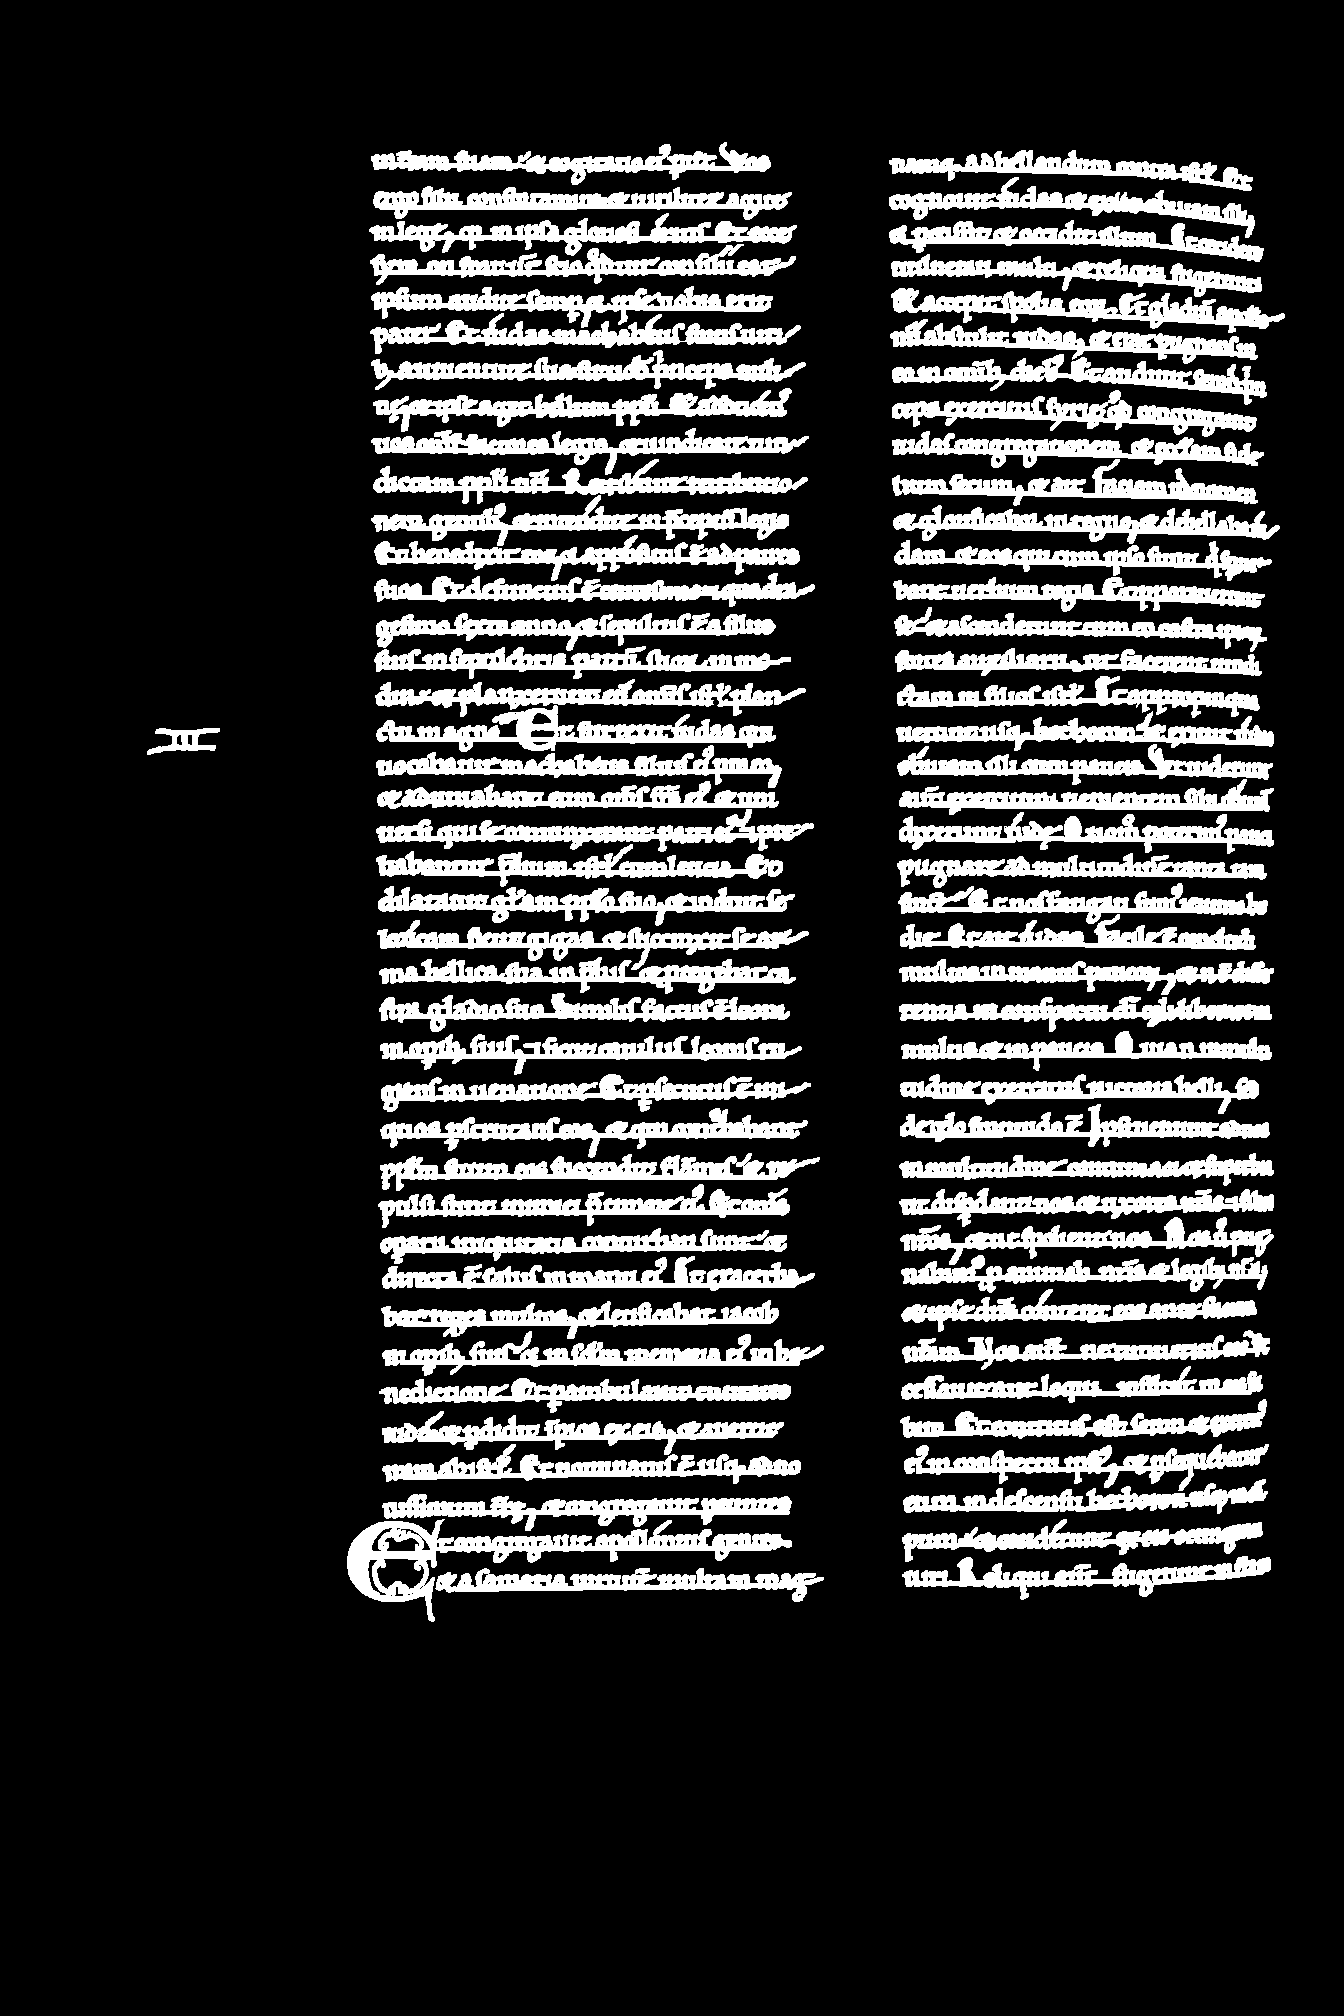 terram suam ⁊ cogitatio ei᷒ periit Vos
ergo filii confortamini ⁊ uiriliter agite
in lege, qꝛ in ipsa gloriosi eritis Et ecce
symon frater uester scio qd uir consilii est
ipsum audite semp ⁊ ipse uobis erit
pater Et iudas machabeus fortis uiri
bꝫ a iuuentute sua sit uobis princeps mili
tie, ⁊ ipse aget bellum ppli Et adducetis
uos omnes factores legis, ⁊ uindicate uin
dictam ppli uri Retribuite retributio
nem gentibꝫ, ⁊ intendite in preceptū legis
Et benedixit eos, ⁊ appositus ē ad patres
suos Et defunctus ē centesimo ⁊ quadra
gesimo sexto anno, ⁊ sepultus ē a filiis
suis in sepulchris patrū suoꝝ in mo
din ⁊ planxerunt eū omnis isrl plan
ctu magno Et surrexit iudas qui
uocabatur machabeus filius ei᷒ pro eo,
⁊ adiuuabant eum omnes frs ei᷒ ⁊ uni
uersi qui se coniunxerant patri ei᷒ ⁊ pre
liabantur plium isrl cum leticia Et
dilatauit gliam pplo suo, ⁊ induit se
loricam sicut gigas ⁊ succinxit se ar
ma bellica sua in pliis ⁊ protegebat ca
stra gladio suo Similis factus ē leoni
in opibꝫ suis, ⁊ sicut catulus leonis ru
giens in uenatione Et psecutus ē ini
quos pscrutans eos, ⁊ qui conturbabant
pplm suum eos succendit flāmis ⁊ re
pulsi sunt inimici p timore ei᷒ Et omīs
oparii iniquitatis conturbati sunt ⁊
directa ē salus in manu ei᷒ Et exacerba
bat reges multos, ⁊ letificabat iacob
in opibꝫ suis ⁊ in sclm memoria ei᷒ in be
nedictione Et pambulauit ciuitates
iuda ⁊ pdidit impios ex eis, ⁊ auertit
iram ab isrl Et nominatus ē usqꝫ ad no
uissimum tre, ⁊ congregauit pereuntes
Et congregauit apollonius gentes
⁊ a samaria uirtutē multam ⁊ mag
namqꝫ. Ad bellandum contra isrl Et
cognouit iudas ⁊ exiit obuiam illi,
⁊ percussit ⁊ occidit illum Et ceciderunt
uulnerati multi, ⁊ reliqui fugerunt
Et accepit spolia eoꝝ Et gladiū apollo
nii abstulit iudas, ⁊ erat pugnans in
eo in omnibꝫ diebꝫ Et audiuit seron prin
ceps exercitus syrie, qd congregauit
iudas congregationem ⁊ ecclesiam fide
lium secum, ⁊ ait Faciam mihi nomen
⁊ glorificabor in regno, ⁊ debellabo iu
dam ⁊ eos qui cum ipso sunt qui sper
nebant uerbum regis Et preparauit
se ⁊ ascenderunt cum eo castra impioꝝ
fortes auxiliarii, ut facerent uindi
ctam in filios isrl Et appropinqua
uerunt usqꝫ bethoron ⁊ exiuit iudas
obuiam illi cum paucis Vt uiderunt
autē exercitum uenientem sibi obuiā
dixerunt iude Quomodo poterimus pauci
pugnare contra multitudinē tantā tam
fortē Et nos fatigati sumus ieiunio ho
die Et ait iudas Facile ē concludi
multos in manus paucoꝝ, ⁊ n̄ ē diffe
rentia in conspectu di celi liberare in
multis ⁊ in paucis Quia n̄ in multi
tudine exercitus uictoria belli, sed
de celo fortitudo ē Ipsi ueniunt ad nos
in multitudine contumaci ⁊ supbia
ut disperdant nos ⁊ uxores nrās ⁊ filios
nrōs, ⁊ ut spolient nos Nos ū pug
nabimus p animabꝫ nris ⁊ legibꝫ nris,
⁊ ipse dns conteret eos ante faciem
nrām Vos autē ne timueritis eos Vt
cessauit aute loqui insiluit in eos su
bito Et contritus est seron ⁊ exercitus
ei᷒ in conspectu ipsius, ⁊ psequebatur
eum in descensu bethoron usqꝫ in cam
pum ⁊ ceciderunt ex eis octingenti
uiri Reliqui autē fugerunt in terram
III